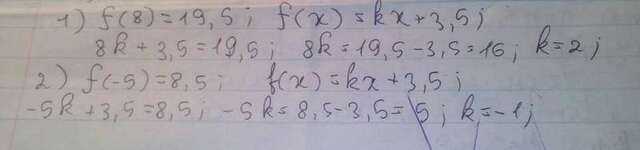 1) f(8)=19,5; f(x)=kx+3,5;
8k+3,5=19,5; 8k=19,5-3,5=16; k=2;
2) f(-5)=8,5; f(x)=kx+3,5;
-5k+3,5=8,5; -5k=8,5-3,5=5; k=-1;